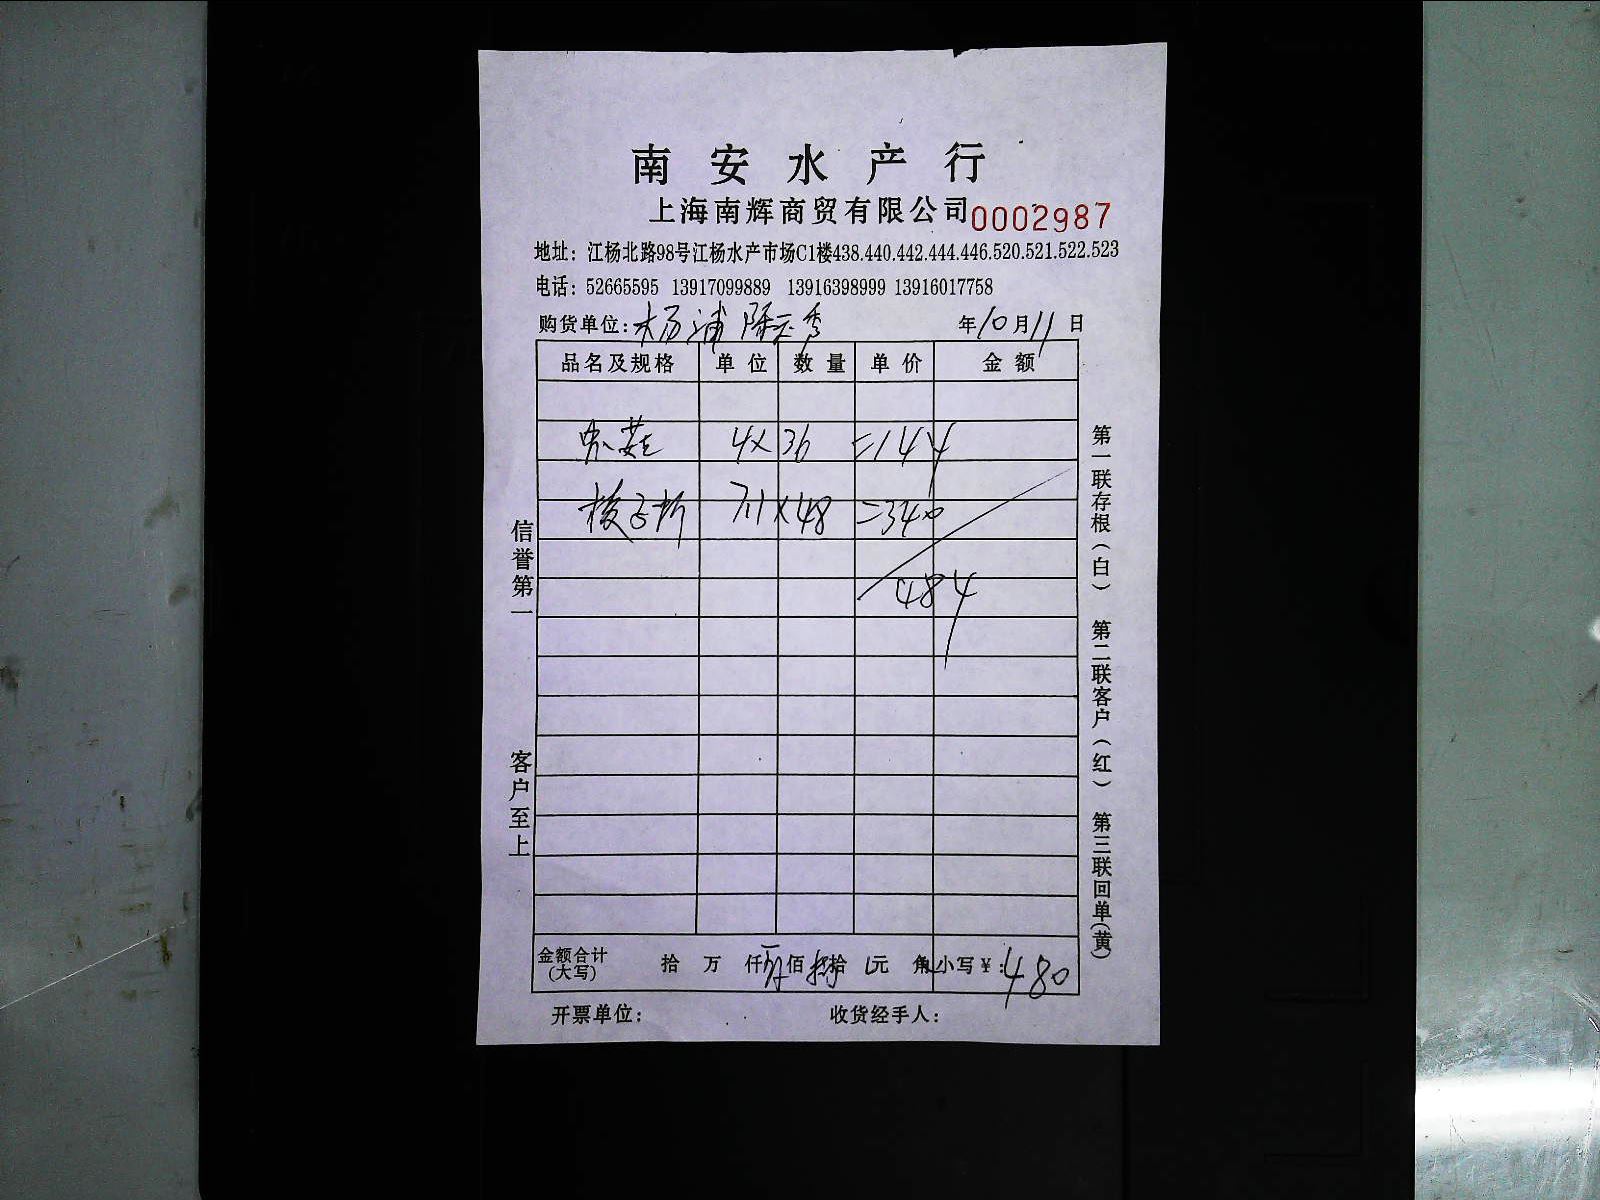 南安水产行
上海南辉商贸有限公司 0002987
地址：江杨北路98号江杨水产市场C1楼438.440.442.444.446.520.521.522.523
电话：52665595 13917099889 13916398999 13916017758
购货单位：杨浦 陈玉秀 年10月11日
品名及规格 单位 数量 单价 金额
4×36=144
梭子 7.1×48=340
484
金额合计(大写) 拾 万 仟 佰 拾 元 角 小写￥：480
开票单位： 收货经手人：
信誉第一
客户至上
第一联存根(白) 第二联客户(红) 第三联回单(黄)